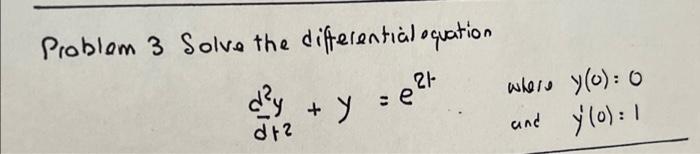 Problem 3 Solve the differential equation
d²y/dt² + y = e^2t where y(0): 0
and ẏ(0): 1